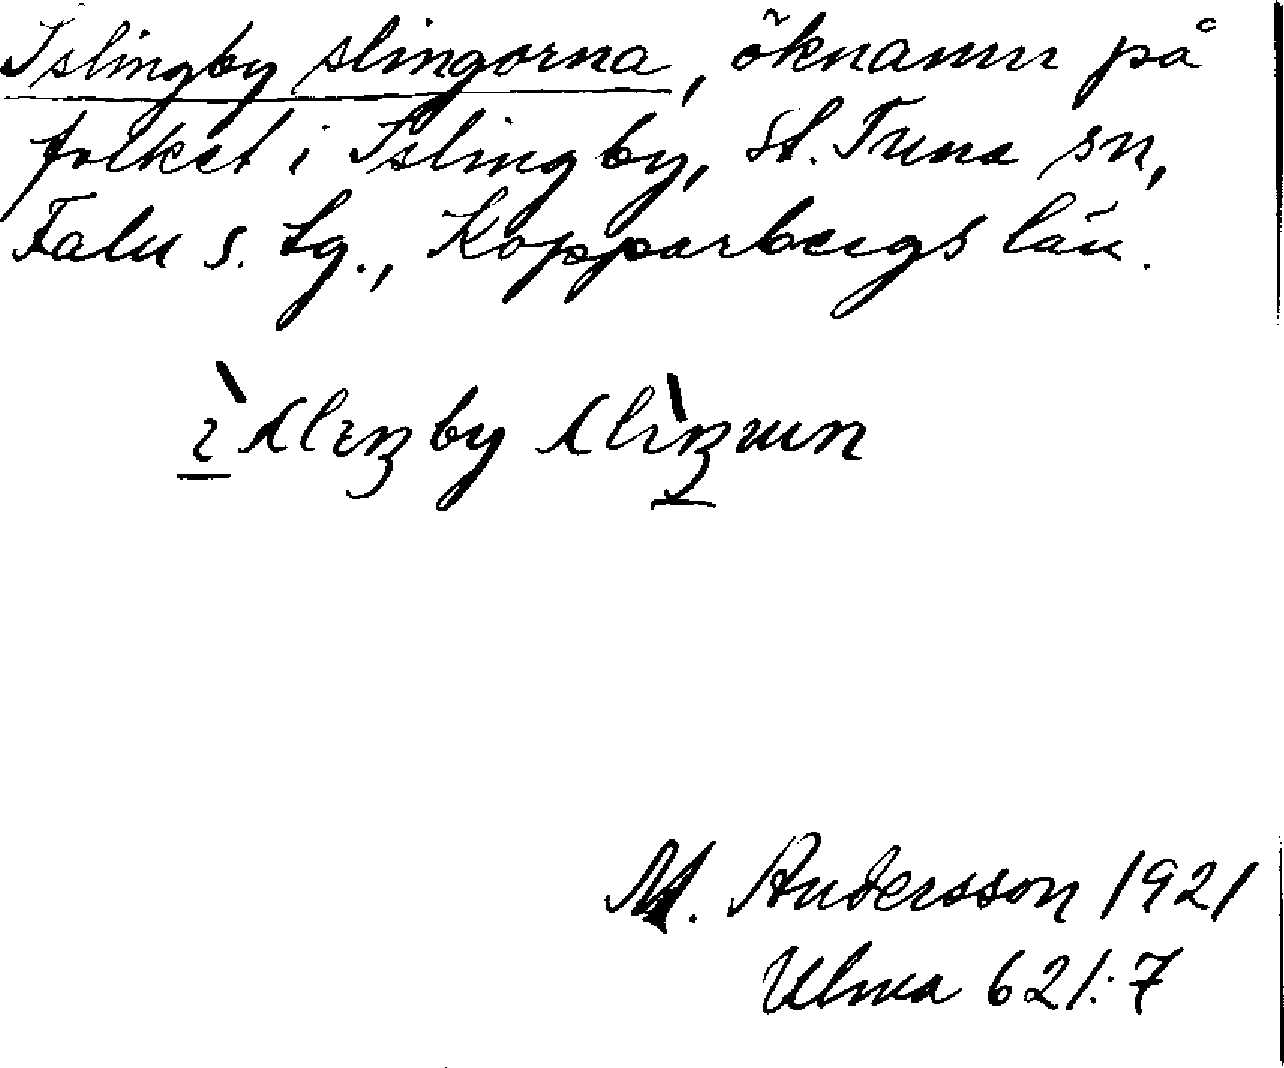 Islingby slingorna, öknamn på
folket i Islingby, St. Tuna sn,
Falu s. Lg., Kopparbergs län.
M. Andersson 1921
Ulma 621:7